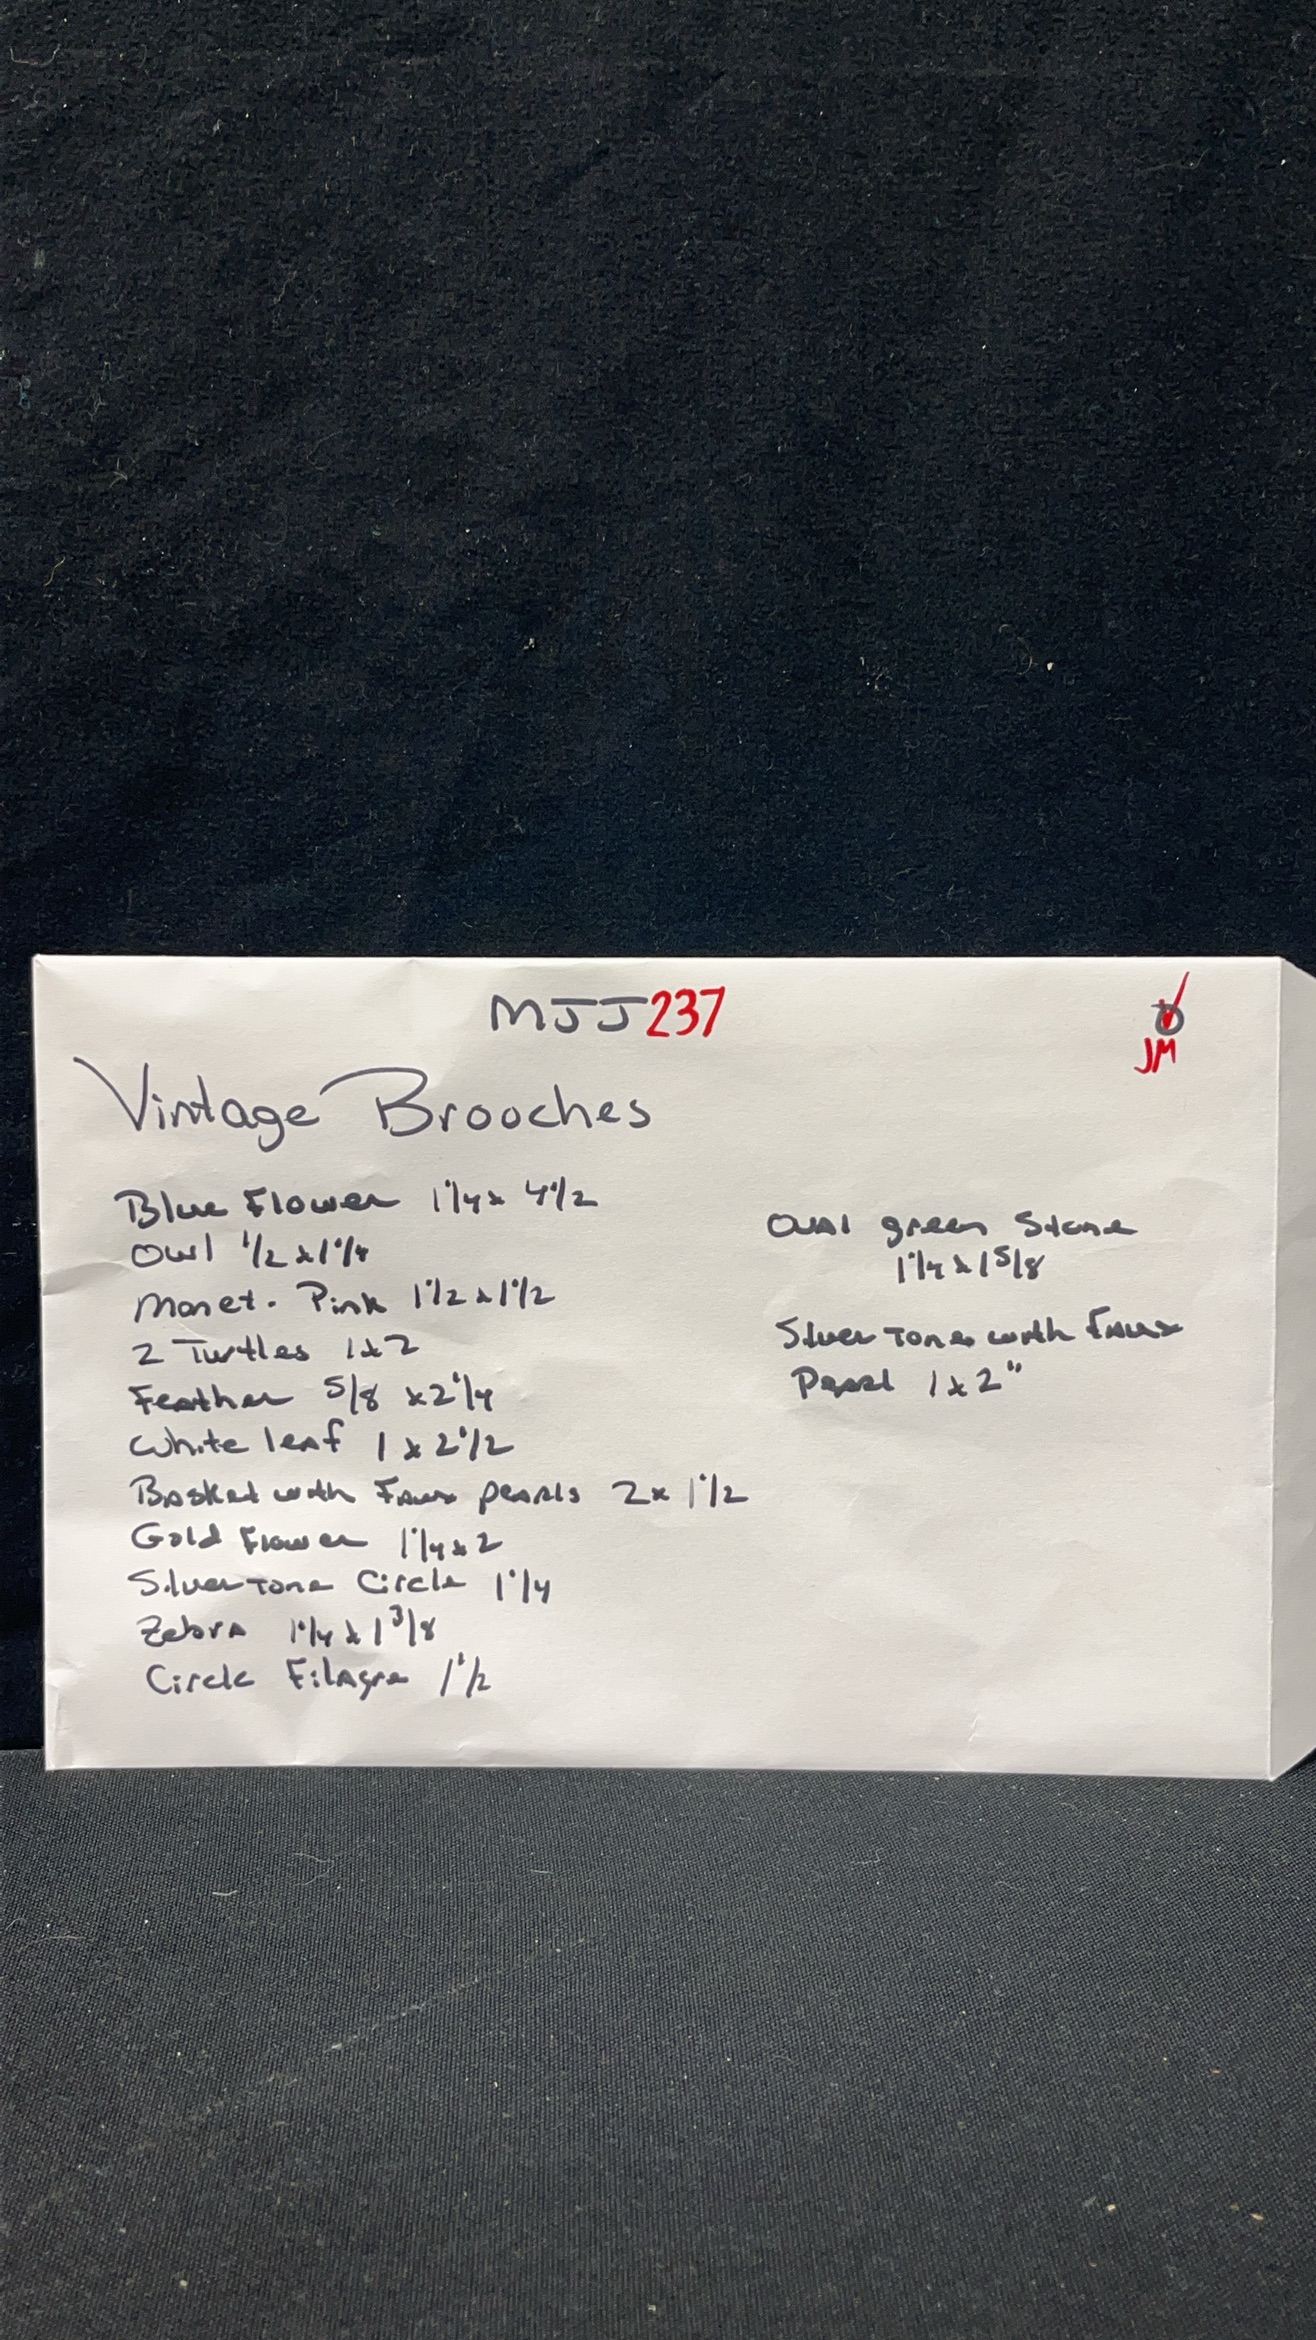 MJJ237
JM
Vintage Brooches
Blue Flower 1 1/4 x 4 1/2
Owl 1/2 x 1 1/4
Monet. Pink 1 1/2 x 1 1/2
2 Turtles 1 x 2
Feather 5/8 x 2 1/4
White leaf 1 x 2 1/2
Basket with Faux pearls 2 x 1 1/2
Gold Flower 1 1/4 x 2
Silver Tone Circle 1 1/4
Zebra 1 1/4 x 1 3/8
Circle Filagre 1 1/2
Oval green Stone
1 1/4 x 1 5/8
Silver Tone with Faux
Pearl 1 x 2"